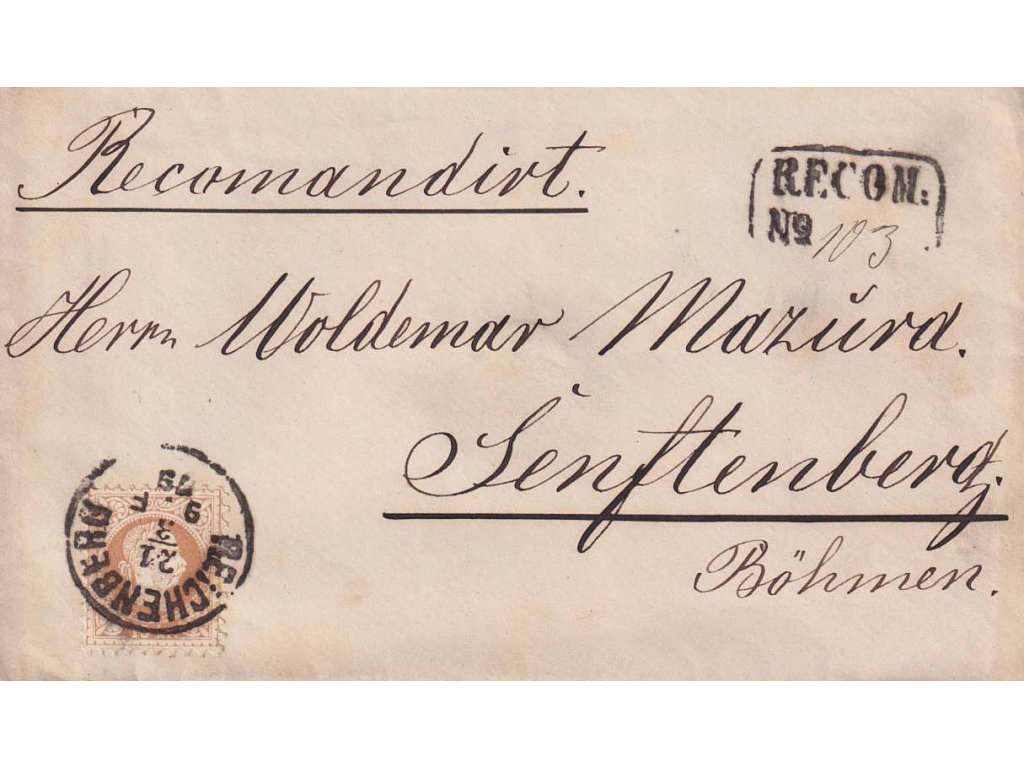 Recomandirt.
RECOM:
No 103.
Herrn Woldemar Mazúra.
Senftenberg.
Böhmen.
REICHENBERG
21/3
9. F
79